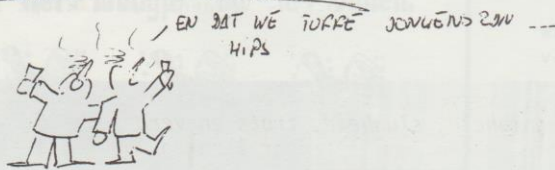 EN DAT WE TOFFE JONGENS ZIJN ---
HIPS